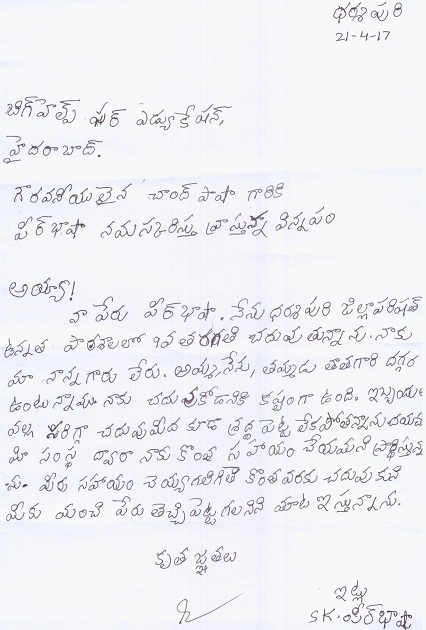 ధర్మపురి
21-4-17
బిగ్‌హెల్ప్ ఫర్ ఎడ్యుకేషన్,
హైదరాబాద్.
గౌరవనీయులైన చాంద్ పాషా గారికి
పీర్ భాషా నమస్కరిస్తు వ్రాస్తున్నా విన్నపం
అయ్యా!
నా పేరు పీర్ భాషా. నేను ధర్మపురి జిల్లాపరిషత్
ఉన్నత పాఠశాలలో 9వ తరగతి చదువుతున్నాను. నాకు
మా నాన్నగారు లేరు. అమ్మ, నేను, తమ్ముడు తాతగారి దగ్గర
ఉంటున్నాము. నాకు చదువుకోడానికి కష్టంగా ఉంది. ఇబ్బందుల
వల్ల సరిగ్గా చదువుమీద కూడ శ్రద్ధ పెట్ట లేకపోతున్నాను దయచేసి
మీ సంస్థ ద్వారా నాకు కొంత సహాయం చేయమని ప్రార్థిస్తున్నా
ను. మీరు సహాయం చెయ్యగలిగితే కొంతవరకు చదువుకుని
మీకు మంచి పేరు తెచ్చిపెట్టగలనని మాట ఇస్తున్నాను.
కృతజ్ఞతలు
ఇట్లు
SK. పీర్ భాషా